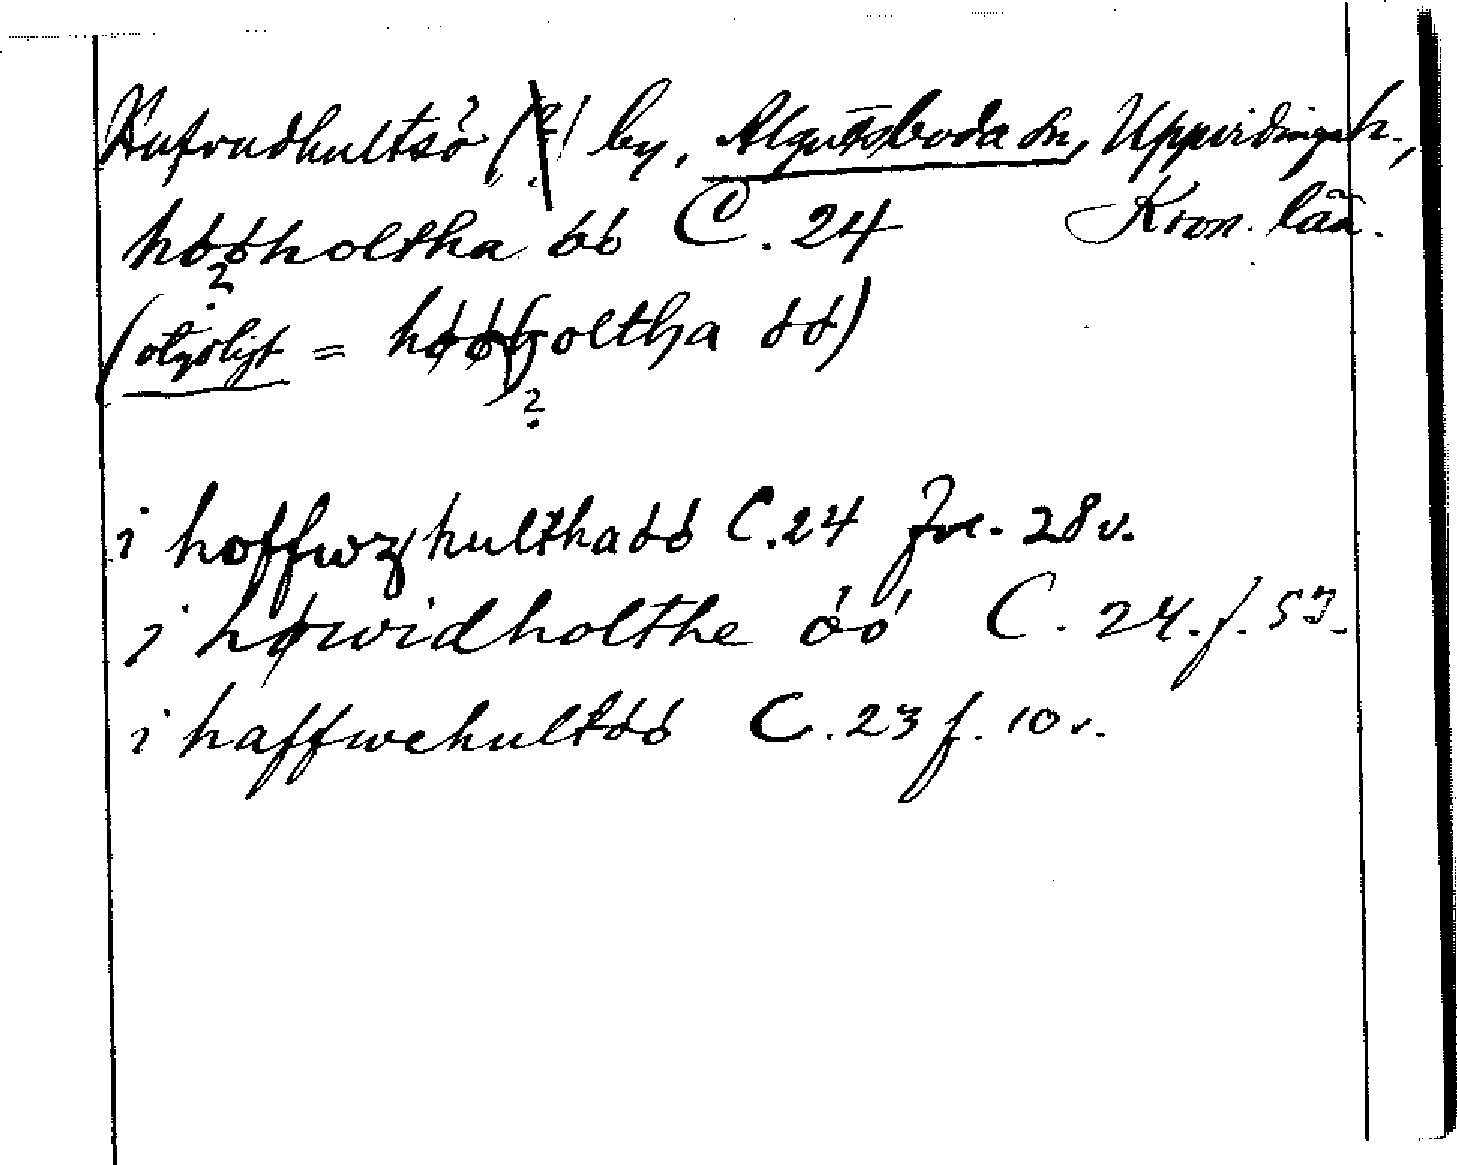 Hufvudhultsö (?) by, Algutsboda sn, Uppvidinge h.,
høøholtha óó C. 24 Kron. län.
?
(otydligt = høøholtha óó)
?
i hoffwzhulthaóó C.24 fol. 28 v.
i høwidholthe óó C. 24. f. 53.
i haffwehultóó C. 23 f. 10 v.